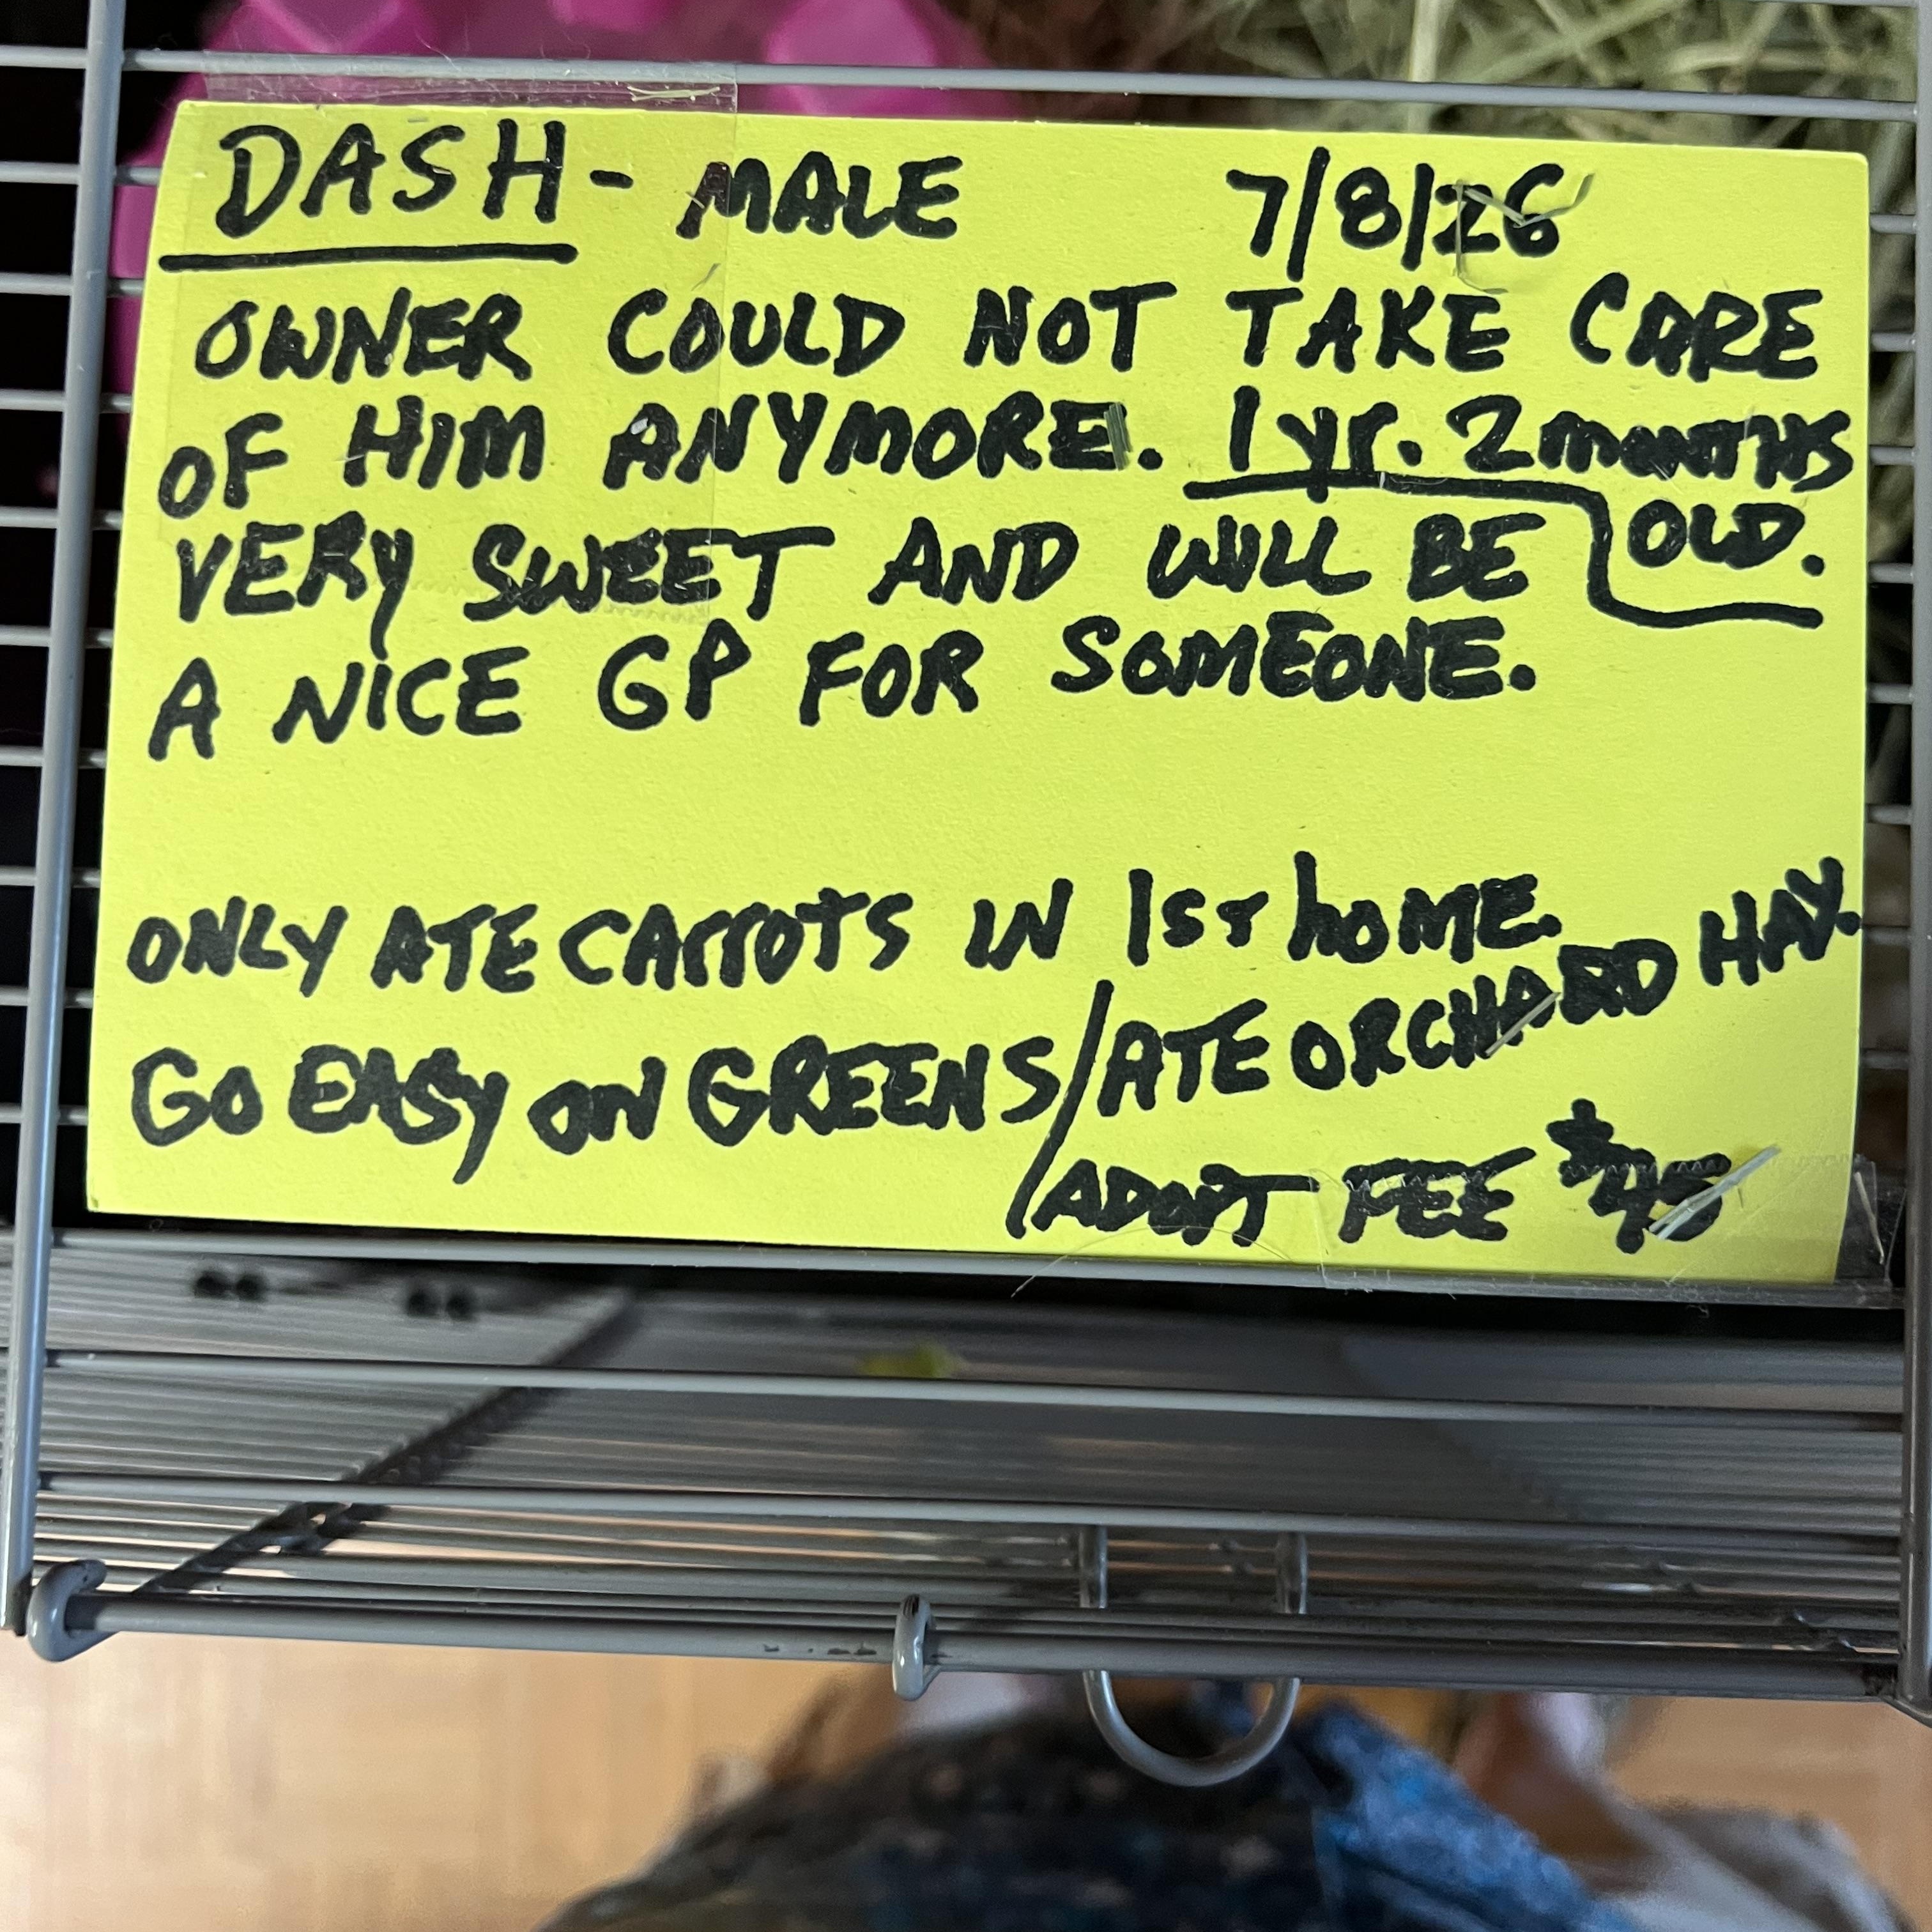 DASH - MALE 7/8/26
OWNER COULD NOT TAKE CARE
OF HIM ANYMORE. 1 yr. 2 months
OLD.
VERY SWEET AND WILL BE
A NICE GP FOR SOMEONE.
ONLY ATE CArrotS IN 1ST hOME.
GO EASY ON GREENS/ATE ORCHARD HAY.
/ADOPT FEE $45